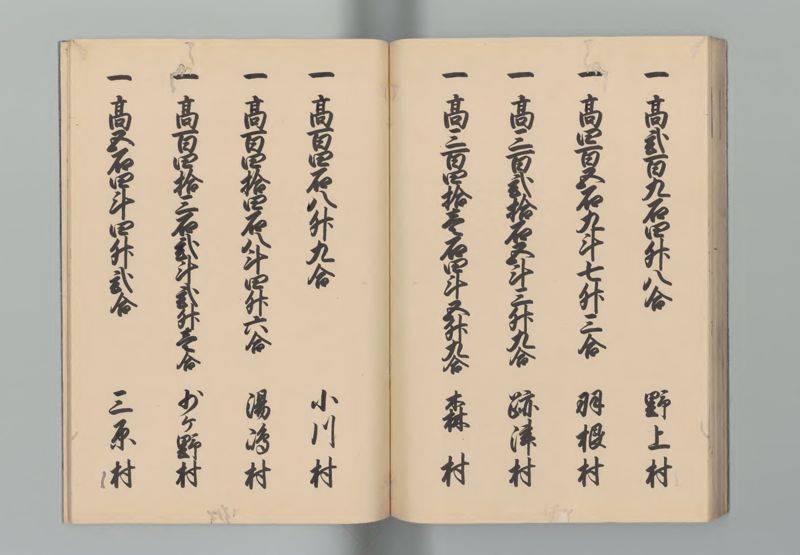 一 高弐百九石四升八合 野上村
一 高四百五石九斗七升三合 羽根村
一 高三百弐拾石五斗三升九合 跡津村
一 高三百四拾壱石四斗五升九合 森村
一 高百四石八升九合 小川村
一 高百四拾四石八斗四升六合 湯嶋村
一 高百四拾三石弐斗弐升壱合 少ケ野村
一 高五石四斗四升弐合 三原村